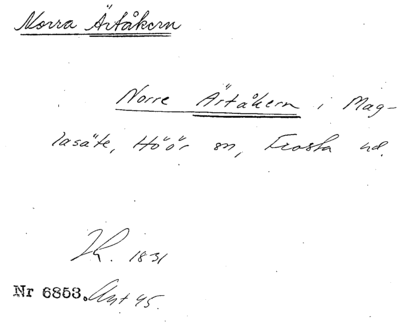 Norra Ärtåkern
Norre Ärtåkern i Mag-
lasäte, Höör sn, Frosta hd.
1831
Nr 6853. Ant 45.